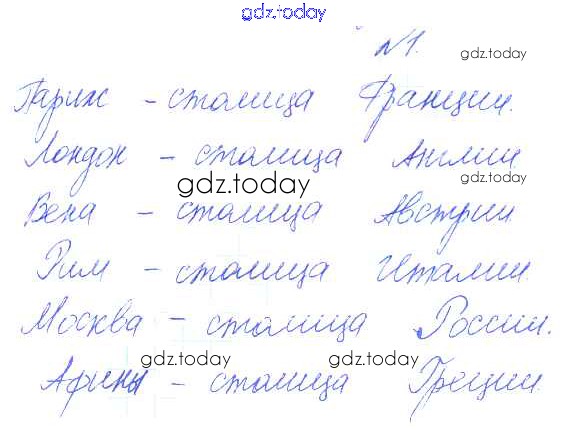 gdz.today
№1.
gdz.today
Париж - столица Франции.
Лондон - столица Англии
gdz.today
gdz.today
Вена - столица Австрии
Рим - столица Италии.
Москва - столица России.
gdz.today
gdz.today
Афины - столица Греции.